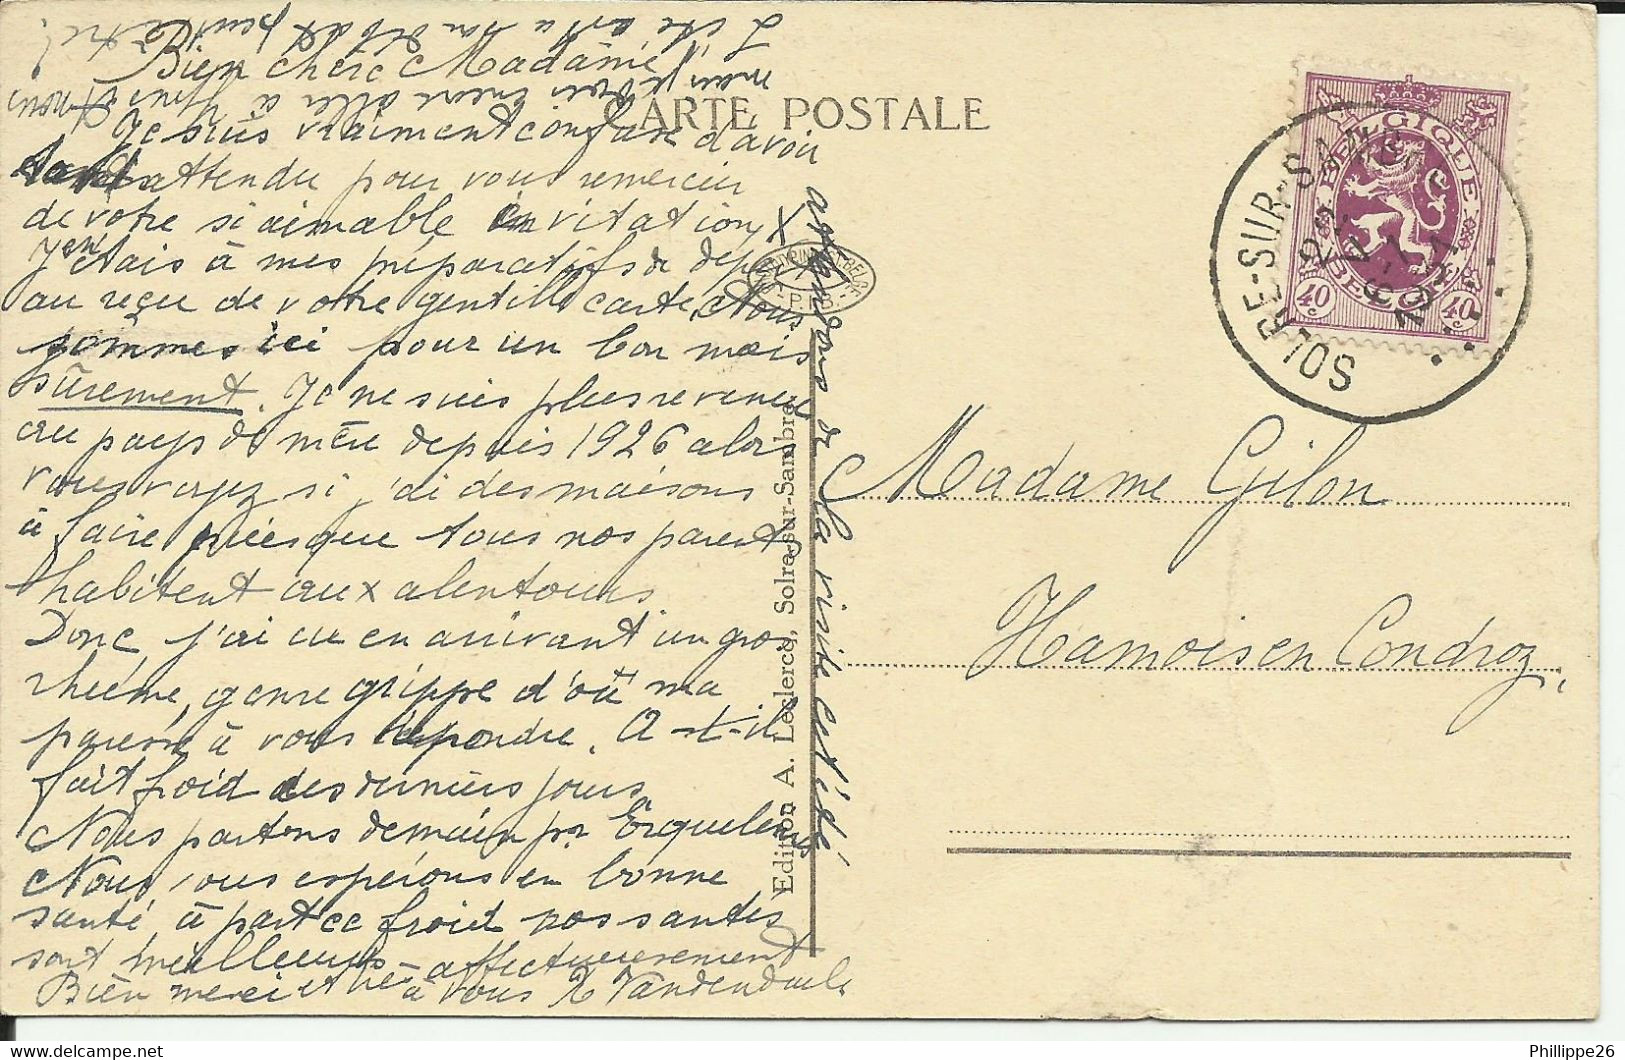 Bien chère Madame
Je suis vraiment confuse d'avoir
tant attendu pour vous remercier
de votre si aimable invitation X
J'en étais à mes préparatifs de départ
au reçu de votre gentille carte. Nous
sommes ici pour un bon mois
sûrement. Je ne suis plus revenue
au pays de mère depuis 1926 alors
vous voyez si j'ai des maisons
à faire puisque tous nos parents
habitent aux alentours
Donc j'ai eu en arrivant un gros
rhume, genre grippe d'où ma
paresse à vous répondre. A-t-il
fait froid ces derniers jours
Nous partons demain pr Erquelinnes
Nous vous espérons en bonne
santé, à part ce froid nos santés
sont meilleures affectueusement
Bien merci et à vous R Vandendaele
X attendons de la visite cet été
mais je dois encore aller à Ypres et nous
L'été à son début peut être!
CARTE POSTALE
P.I.B.
Edition A. Leclercq, Solre-sur-Sambre
BELGIQUE
BELGIE
40 c
40 c
SOLRE-SUR-SAMBRE
22
VI
19
Madame Gilon
Hamois en Condroz
Phillippe26